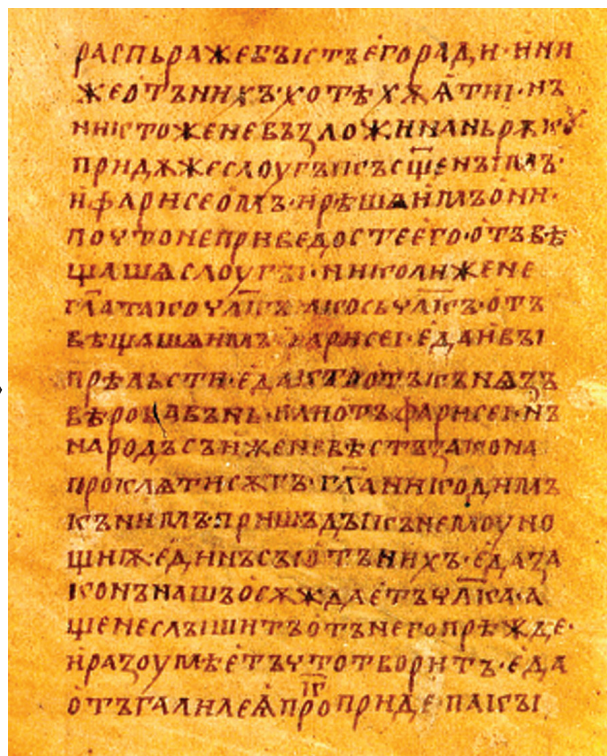 распьражебꙑстъегоради·ини
жеотънихъхотѣхѫѩти·нъ
никтоженевъзложинаньрѫкоу
придѫжеслоугъıкъсщ҃енъıмъ·
ифарисеомъ·ирѣшѧимъони·
почтонеприведостеего·отъвѣ
щашѧслоугъı·николижене
гл҃атакочл҃къ·ꙗкосьчл҃къ·отъ
вѣщашѧимъфарисеі·едаивъı
прѣльсти·едактоотъкънѧзъ
вѣровавънь·илиотъфарисеі·нъ
народъсъиженевѣстъзакона
проклѧтисѫтъ·гл҃аникодимъ
кънимъ·пришъдъıкънемоуно
щиѭ·единъсъıотънихъ·едаза
конънашъосѫждаетъчл҃ка·а
щенеслъıшитъотънегопрѣжде·
иразоумѣетъчтотворитъ·еда
отъгалилеѩпр҃опк҃ъприде·пакъı